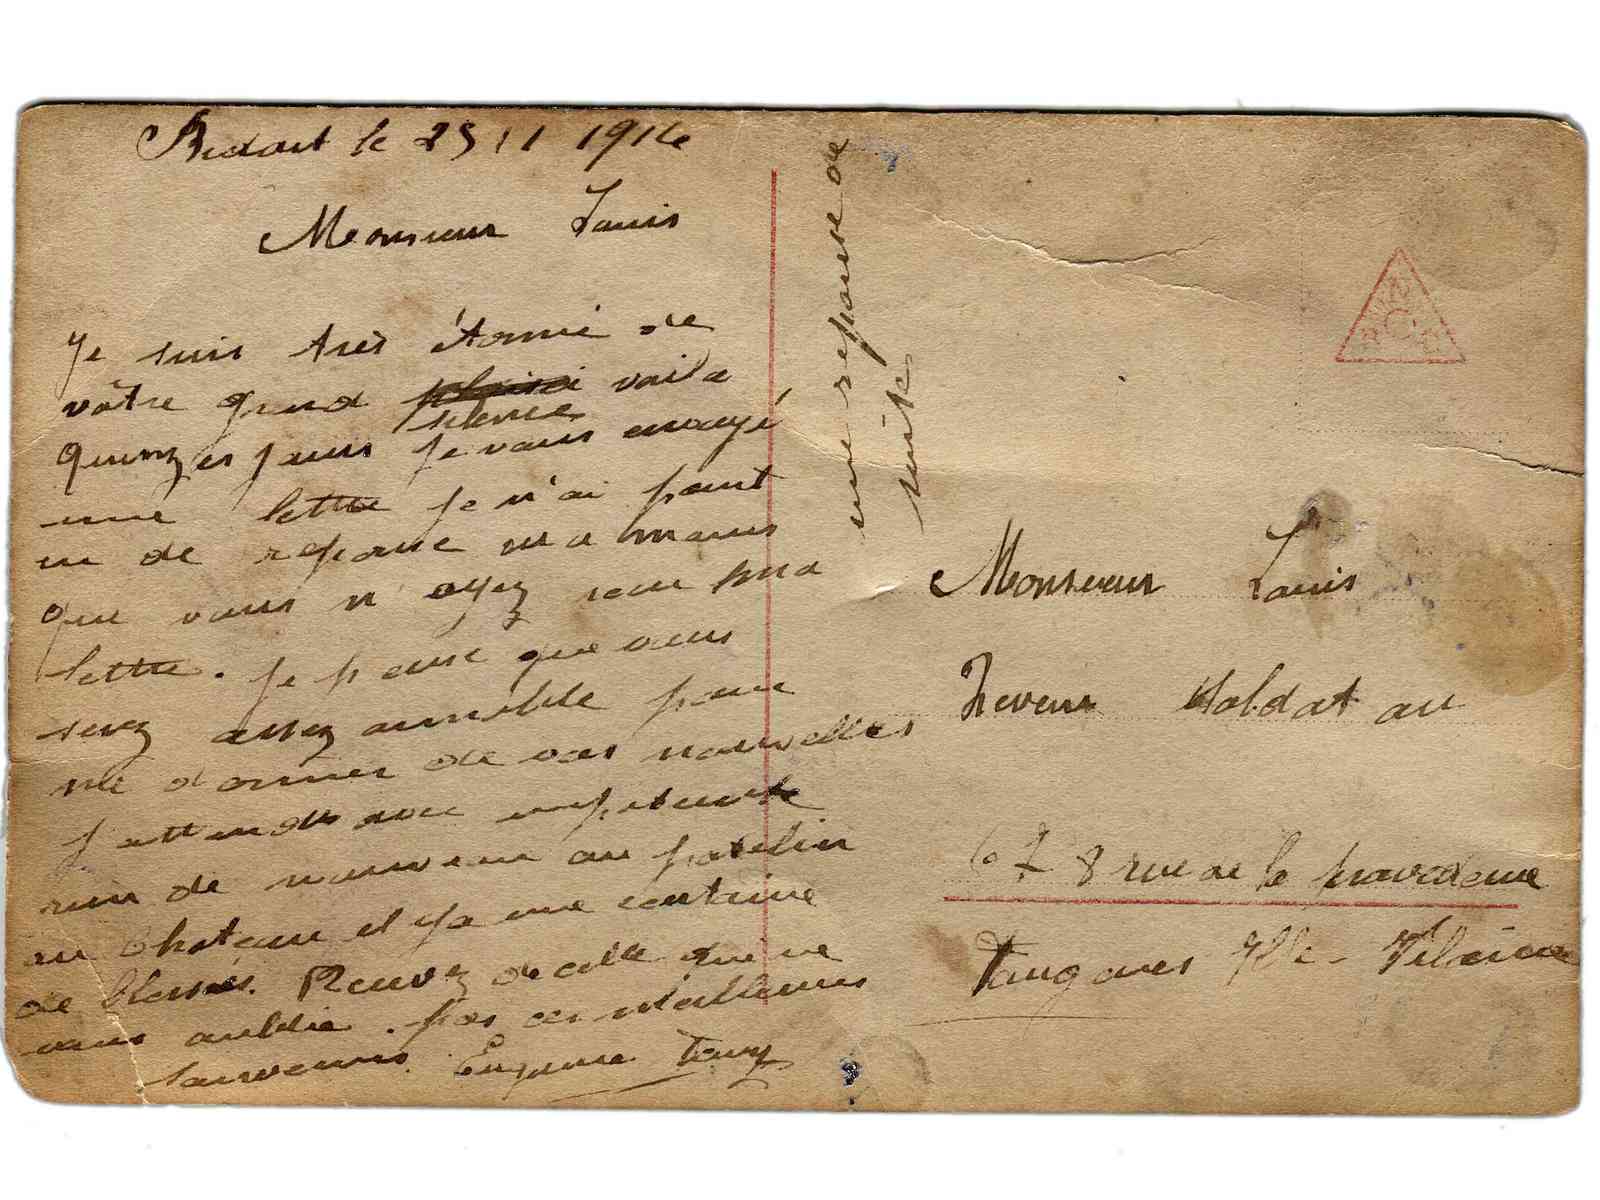 Bidart le 25 11 1914
Monsieur Louis
Je suis très étonné de
vôtre grand silence voila
quinzes jours je vous envoyé
une lettre je n'ai point
eu de reponse
que vous n'ayez reçu ma
lettre. je pense que vous
serez assez aimable pour
me donner de vos nouvelles
j'attends avec impatience
rien de nouveau au patelin
au Chateau il y a une centaine
de blessés. Recevez de celle qui ne
vous oublie pas ces meilleures
souvenirs. Eugenie
une reponse de
suite
Monsieur Louis
soldat au
67 8 rue de la providence
Fougares Ille - Vilaine